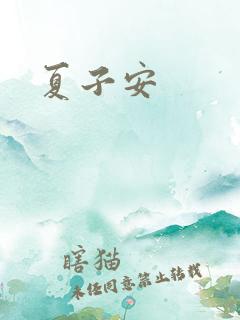 夏子安
瞎猫
未经同意禁止转载